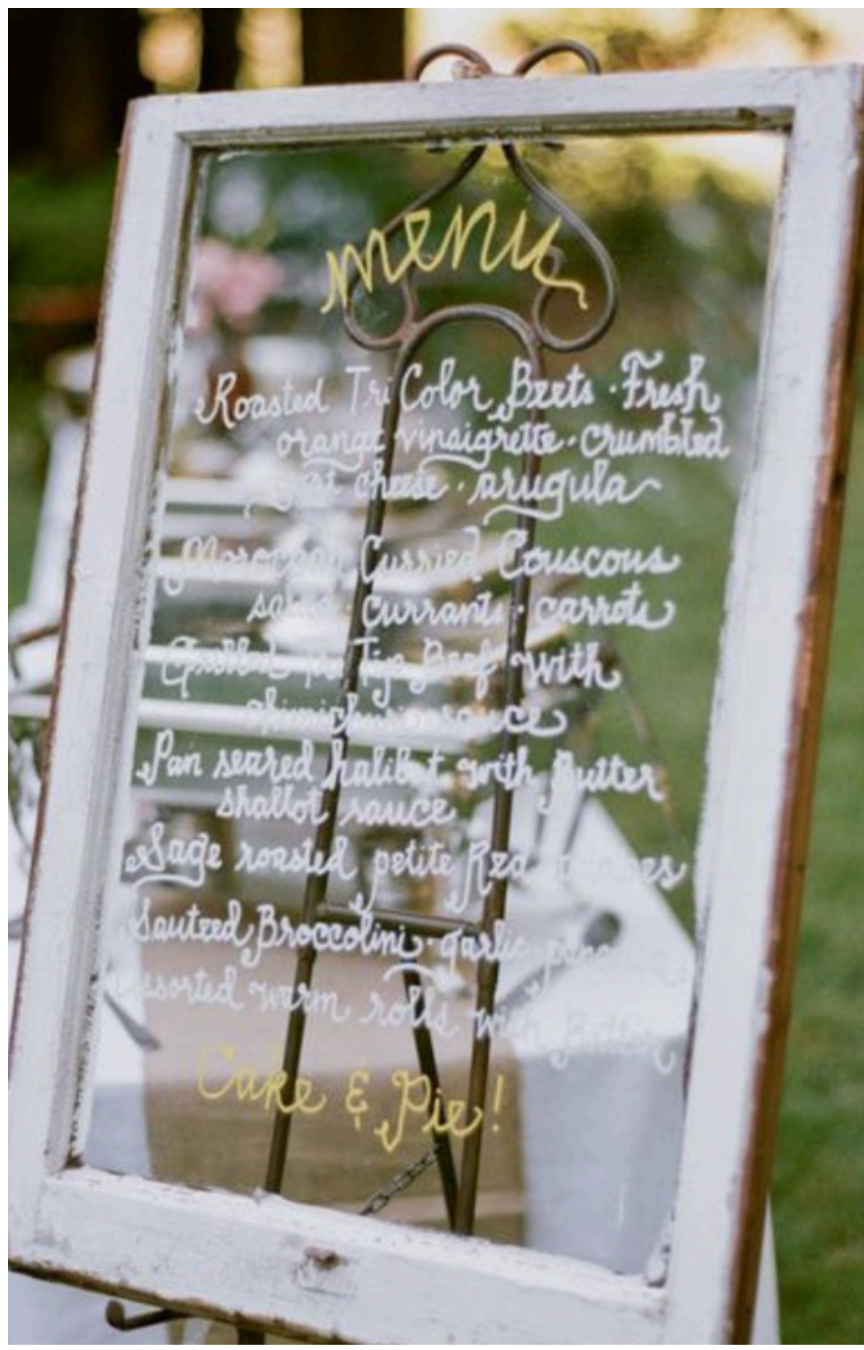 menu
Roasted Tri Color Beets · Fresh
orange vinaigrette · crumbled
goat cheese · arugula
Moroccan Curried Couscous
currants · carrots
Grilled Tri Tip Beef with
chimichurri sauce
Pan seared halibut with Butter
shallot sauce
Sage roasted petite Red potatoes
Sauteed Broccolini · garlic
assorted warm rolls with Butter
Cake & Pie!